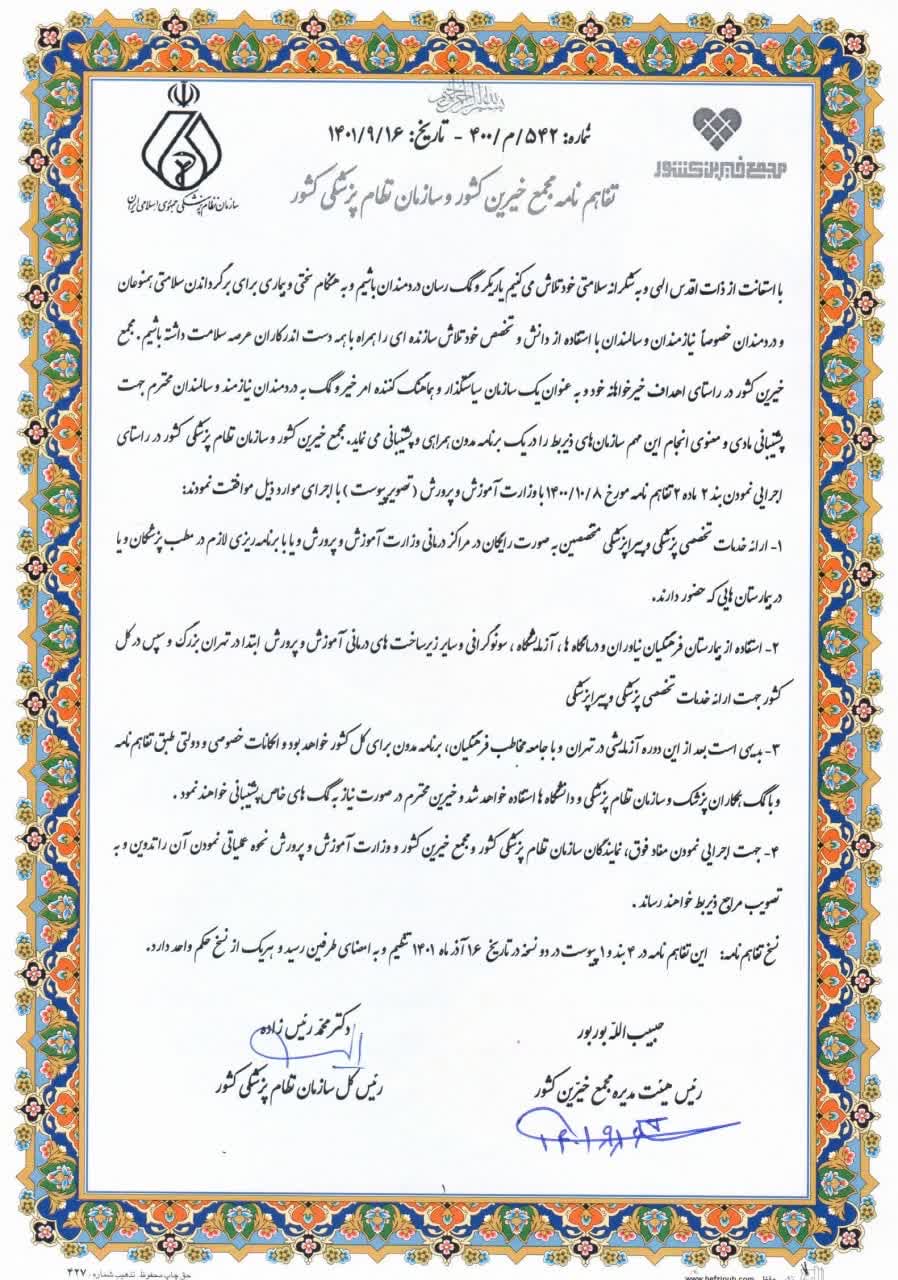 بسم الله الرحمن الرحیم
شماره: ۵۴۲/م/۴۰۰ - تاریخ: ۱۴۰۱/۹/۱۶
مجمع خیرین کشور
سازمان نظام پزشکی جمهوری اسلامی ایران
تفاهم نامه مجمع خیرین کشور و سازمان نظام پزشکی کشور
با استعانت از ذات اقدس الهی و به شکرانه سلامتی خود تلاش می کنیم یاریگر و کمک رسان دردمندان باشیم و به هنگام سختی و بیماری برای برگرداندن سلامتی همنوعان
و دردمندان خصوصاً نیازمندان و سالمندان با استفاده از دانش و تخصص خود تلاش سازنده ای را همراه با همه دست اندرکاران عرصه سلامت داشته باشیم. مجمع
خیرین کشور در راستای اهداف خیرخواهانه خود و به عنوان یک سازمان سیاستگذار و هماهنگ کننده امر خیر و کمک به دردمندان نیازمند و سالمندان محترم جهت
پشتیبانی مادی و معنوی انجام این مهم سازمان‌های ذیربط را در یک برنامه مدون همراهی و پشتیبانی می نماید. مجمع خیرین کشور و سازمان نظام پزشکی کشور در راستای
اجرایی نمودن بند ۲ ماده ۲ تفاهم نامه مورخ ۱۴۰۰/۱۰/۸ با وزارت آموزش و پرورش (تصویر پیوست) با اجرای موارد ذیل موافقت نمودند:
۱- ارائه خدمات تخصصی پزشکی و پیراپزشکی متخصصین به صورت رایگان در مراکز درمانی وزارت آموزش و پرورش و یا با برنامه ریزی لازم در مطب پزشکان و یا
در بیمارستان هایی که حضور دارند.
۲- استفاده از بیمارستان فرهنگیان نیاوران و درمانگاه ها، آزمایشگاه، سونوگرافی و سایر زیرساخت های درمانی آموزش و پرورش ابتدا در تهران بزرگ و سپس در کل
کشور جهت ارائه خدمات تخصصی پزشکی و پیراپزشکی
۳- بدیهی است بعد از این دوره آزمایشی در تهران و با جامعه مخاطب فرهنگیان، برنامه مدون برای کل کشور خواهد بود و امکانات خصوصی و دولتی طبق تفاهم نامه
و با کمک همکاران پزشک و سازمان نظام پزشکی و دانشگاه ها استفاده خواهد شد و خیرین محترم در صورت نیاز به کمک های خاص پشتیبانی خواهند نمود.
۴- جهت اجرایی نمودن مفاد فوق، نمایندگان سازمان نظام پزشکی کشور و مجمع خیرین کشور و وزارت آموزش و پرورش نحوه عملیاتی نمودن آن را تدوین و به
تصویب مراجع ذیربط خواهند رساند.
نسخ تفاهم نامه: این تفاهم نامه در ۴ بند و ۱ پیوست در دو نسخه در تاریخ ۱۶ آذر ماه ۱۴۰۱ تنظیم و به امضای طرفین رسید و هریک از نسخ حکم واحد دارد.
حبیب الله بوربور
رئیس هیئت مدیره مجمع خیرین کشور
۱۴۰۱/۹/۱۶
دکتر محمد رئیس زاده
رئیس کل سازمان نظام پزشکی کشور
۱
حق چاپ محفوظ. تذهیب شماره: ۴۲۷